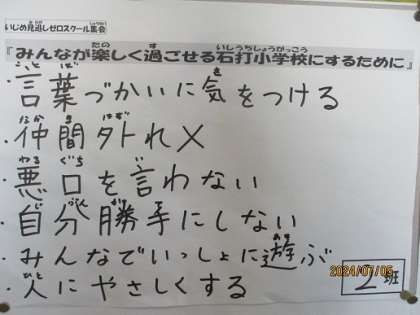 いじめ見逃しゼロスクール集会
『みんなが楽しく過ごせる石打小学校にするために』
・言葉づかいに気をつける
・仲間外れ×
・悪口を言わない
・自分勝手にしない
・みんなでいっしょに遊ぶ
・人にやさしくする
2班
2024/07/05